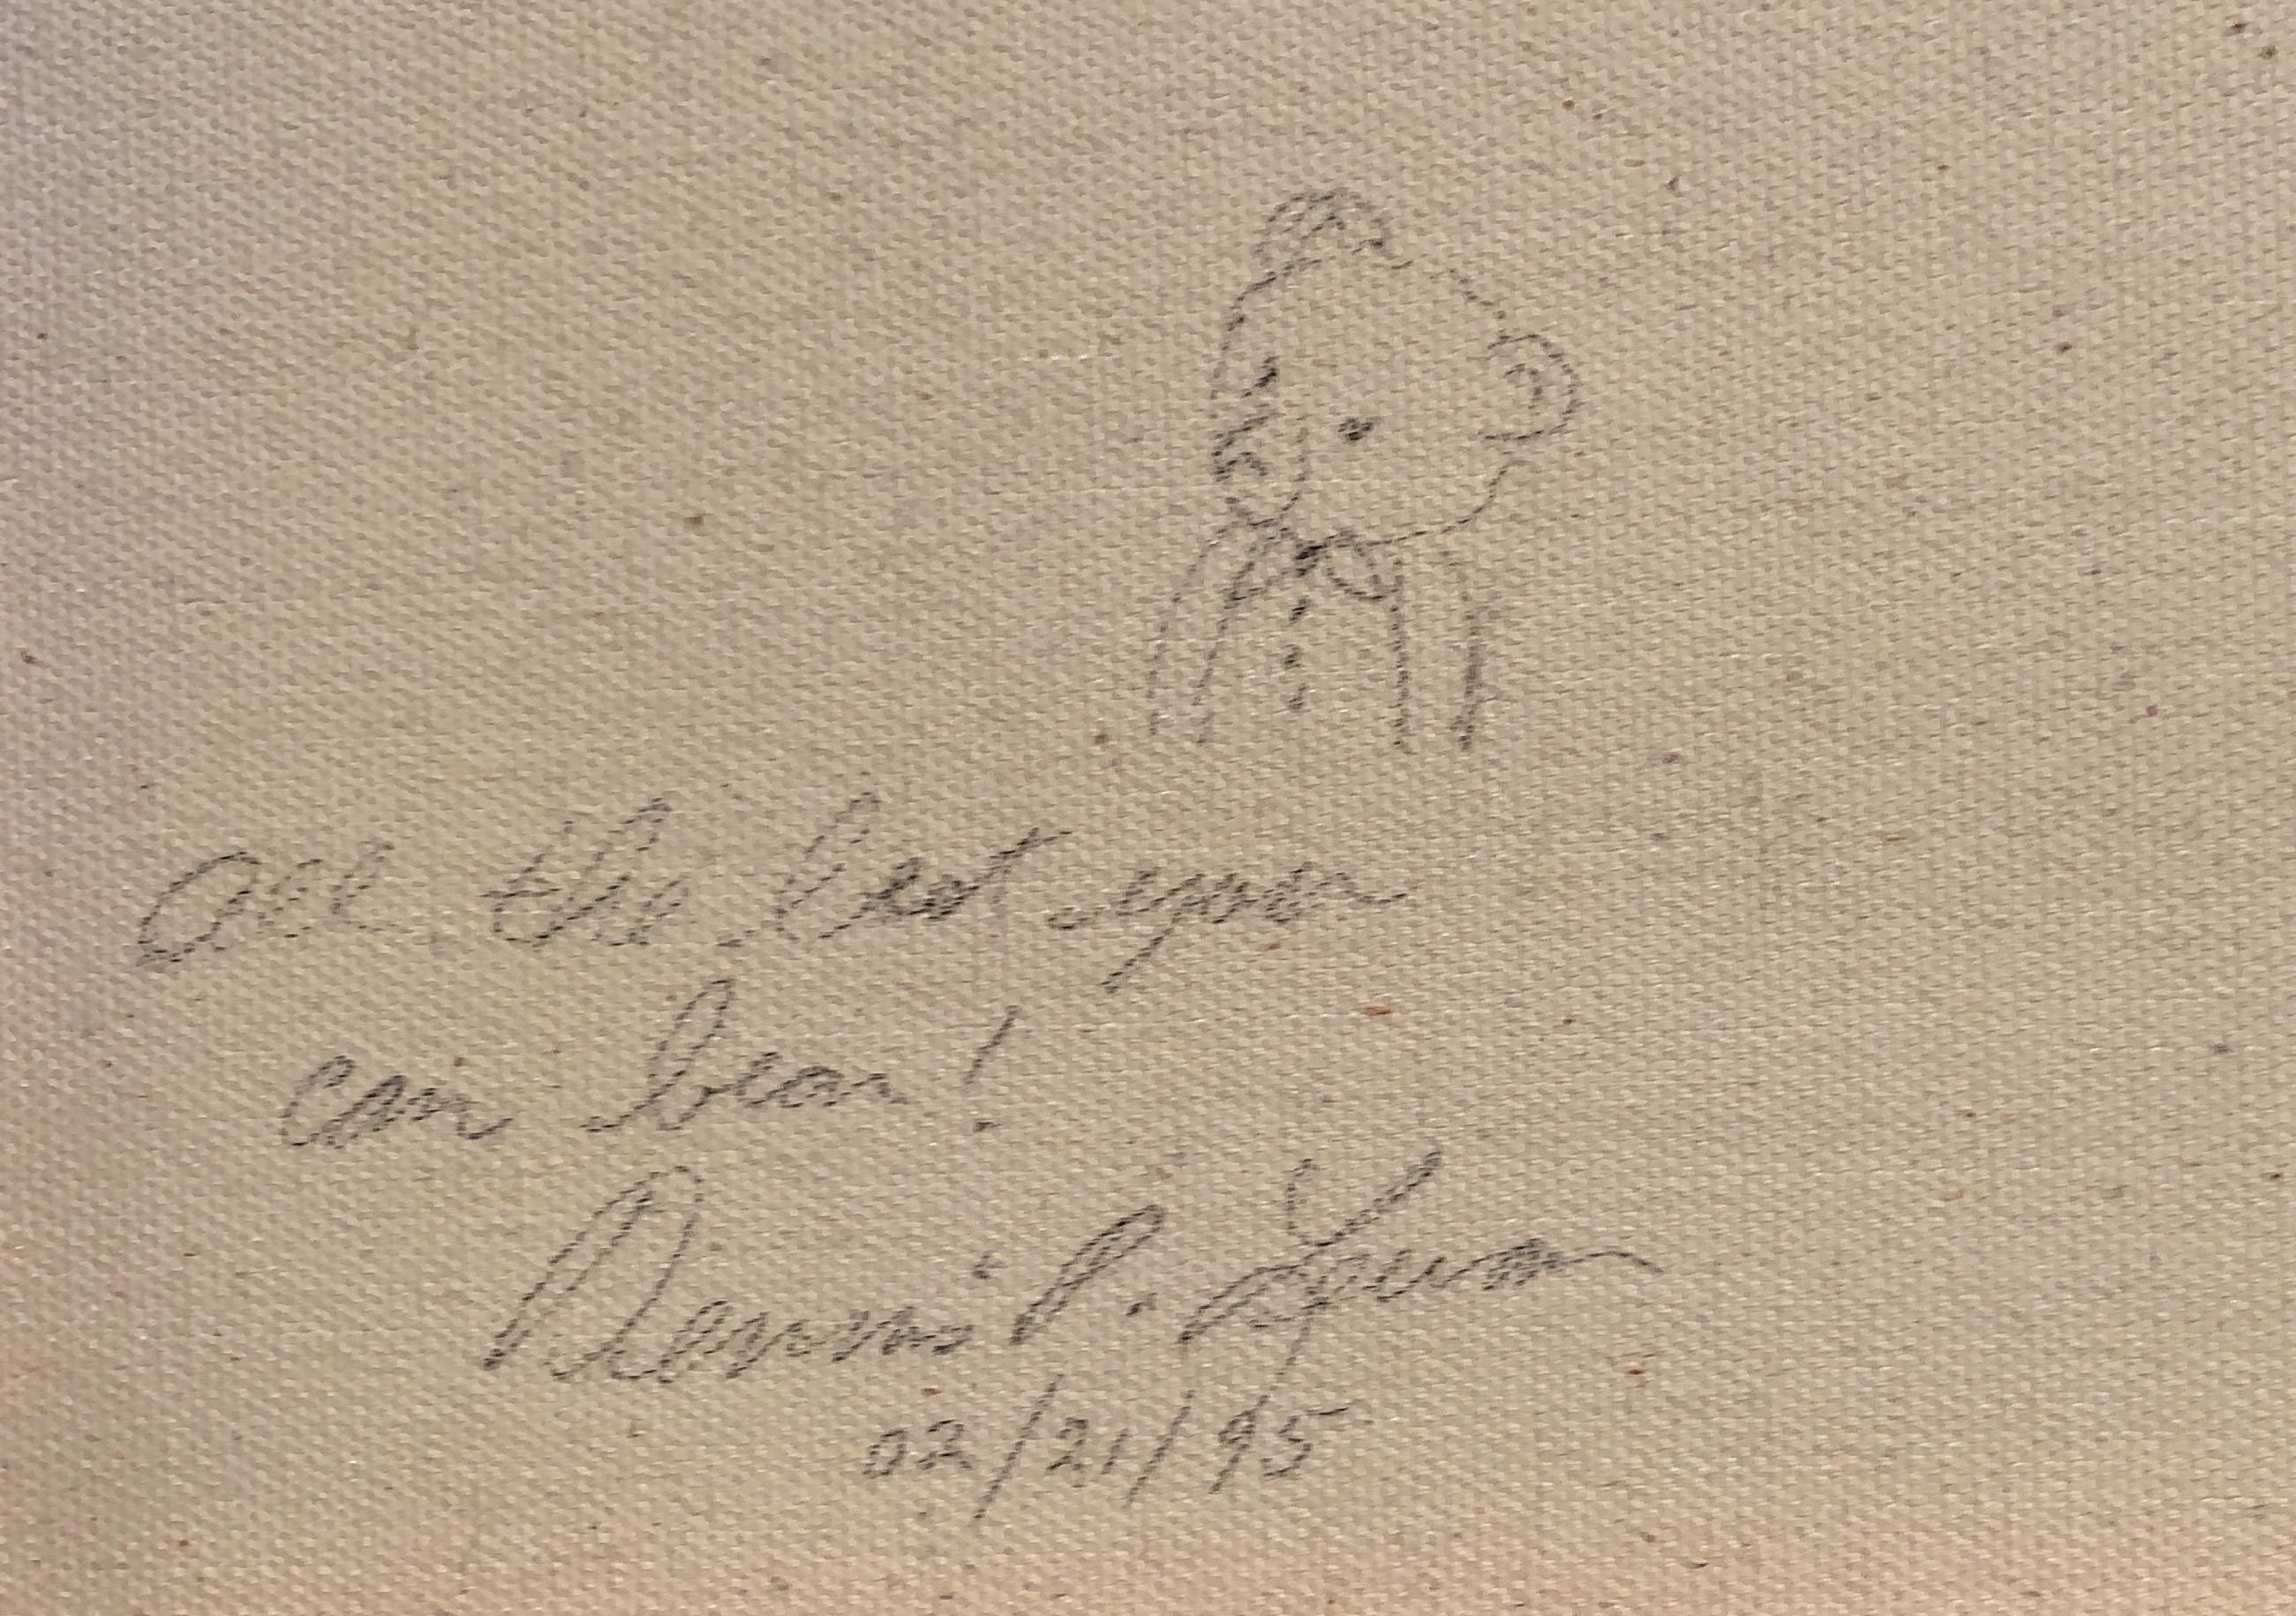 All the best you
can bear!
Dennis P. Lewan
02/21/95